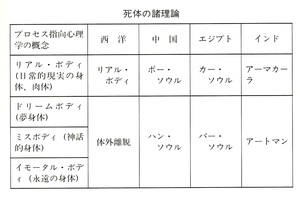 死体の諸理論
プロセス指向心理
学の概念
西洋
中国
エジプト
インド
リアル・ボディ
(日常的現実の身
体、肉体)
リアル・
ボディ
ポー・
ソウル
カー・
ソウル
アーマカー
ラ
ドリームボディ
(夢身体)
ミスボディ(神話
的身体)
イモータル・ボデ
ィ(永遠の身体)
体外離脱
ハン・
ソウル
バー・
ソウル
アートマン